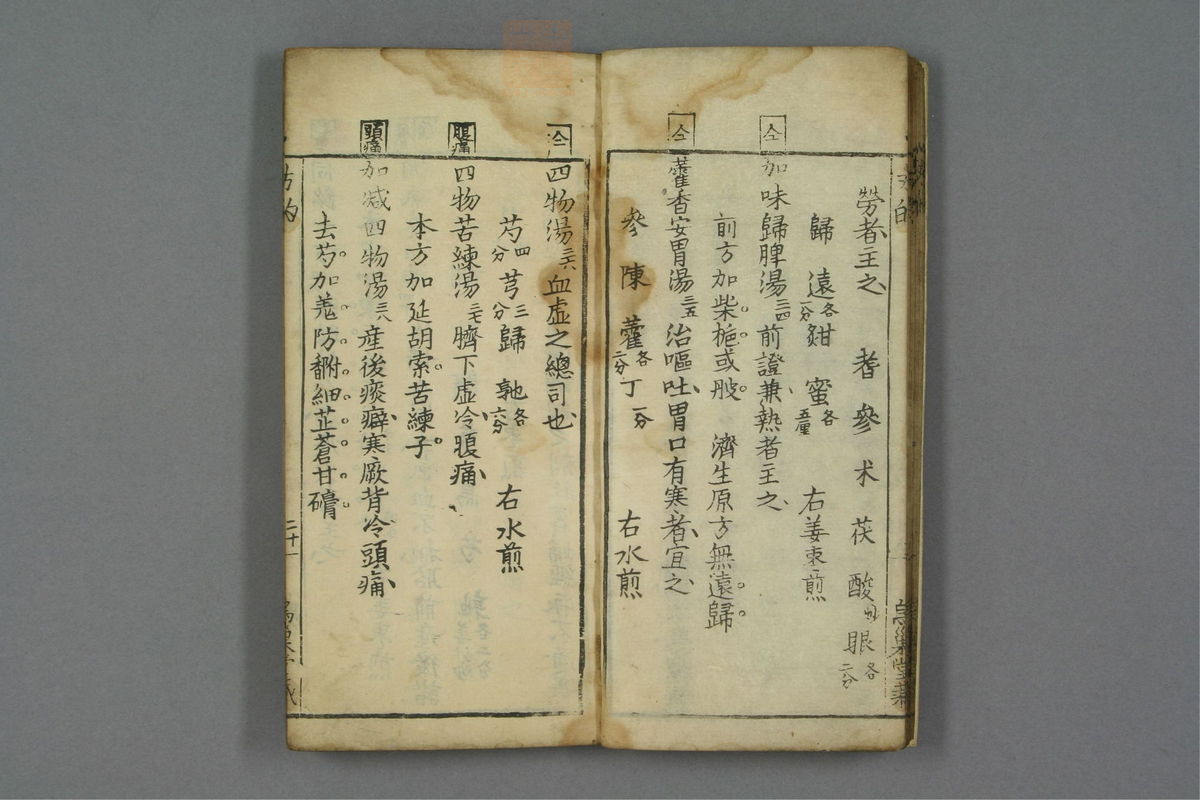 勞者主之 耆參朮茯酸 眼各二分
歸 遠各一分 甘 蜜各五厘 右姜棗煎
仝 加味歸脾湯三四 前證兼熱者主之
前方加柴梔或 濟生原方無遠歸
仝 藿香安胃湯三五 治嘔吐胃口有寒者宜之
參 陳 藿各二分 丁一分 右水煎
仝 四物湯三六 血虛之總司也
芍四分 芎三分 歸 各六分 右水煎
腹痛 四物苦練湯三七 臍下虛冷腹痛
本方加延胡索苦練子
頭痛 加減四物湯三八 産後痰癖寒厥背冷頭痛
去芍加羗防 細芷蒼甘
方的 二十一